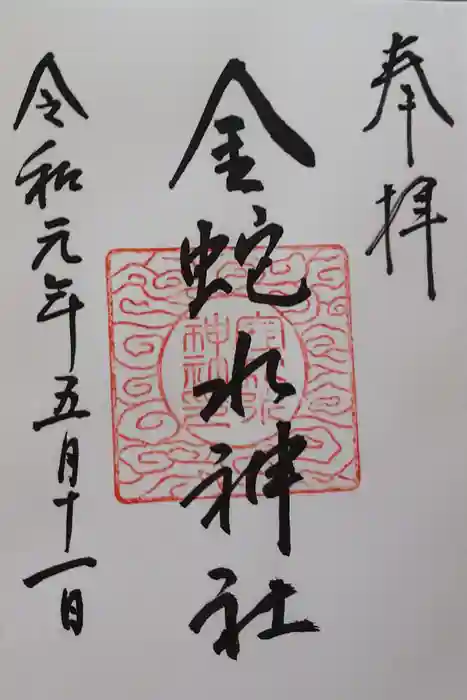 奉拝
金蛇水神社
令和元年五月十一日